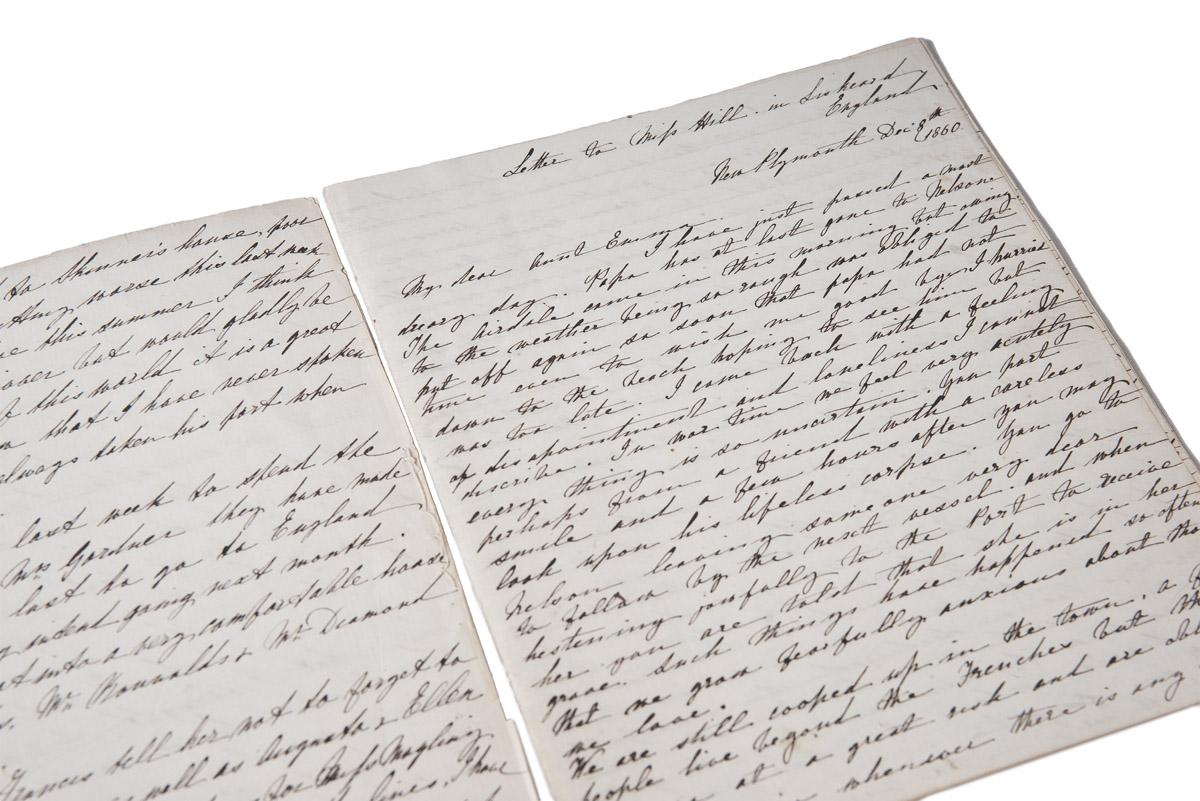 to Skinner's house, poor
Amy worse this last week
this summer I think
over but would gladly be
of this world it is a great
that I have never spoken
always taken his part when
last week to spend the
Mrs Gardner they have made
last to go to England
indeed going next month.
into a very comfortable house
Mr & Mr Diamond
Francis tell her not to forget to
as well as Augusta & Ellen
for Miss
lines. I have
Letter to Miss Hill. in Liskeard
England
New Plymouth Dec 8th 1860
My dear Aunt Emma
I have just passed a most
dreary day. Papa has at last gone to Nelson
The Airdale came in this morning but owing
to the weather being so rough was obliged to
put off again so soon that papa had not
time even to wish me good bye, I hurried
down to the beach hoping to see him but
was too late. I came back with a feeling
of disapointment and loneliness I cannot
discribe. In war time we feel very acutely
every thing is so uncertain. You part
perhaps from a friend with a careless
smile and a few hours after you may
look upon his lifeless corpse. You go to
Nelson leaving some one very dear
to follow by the next vessel. and when
hestening joyfully to the Port to receive
her you are told that she is in her
grave. Such things have happened so often
that we grow fearfully anxious about those
we love.
We are still cooped up in the town, a
people live beyond the Trenches but
at a great risk and are
whenever there is any